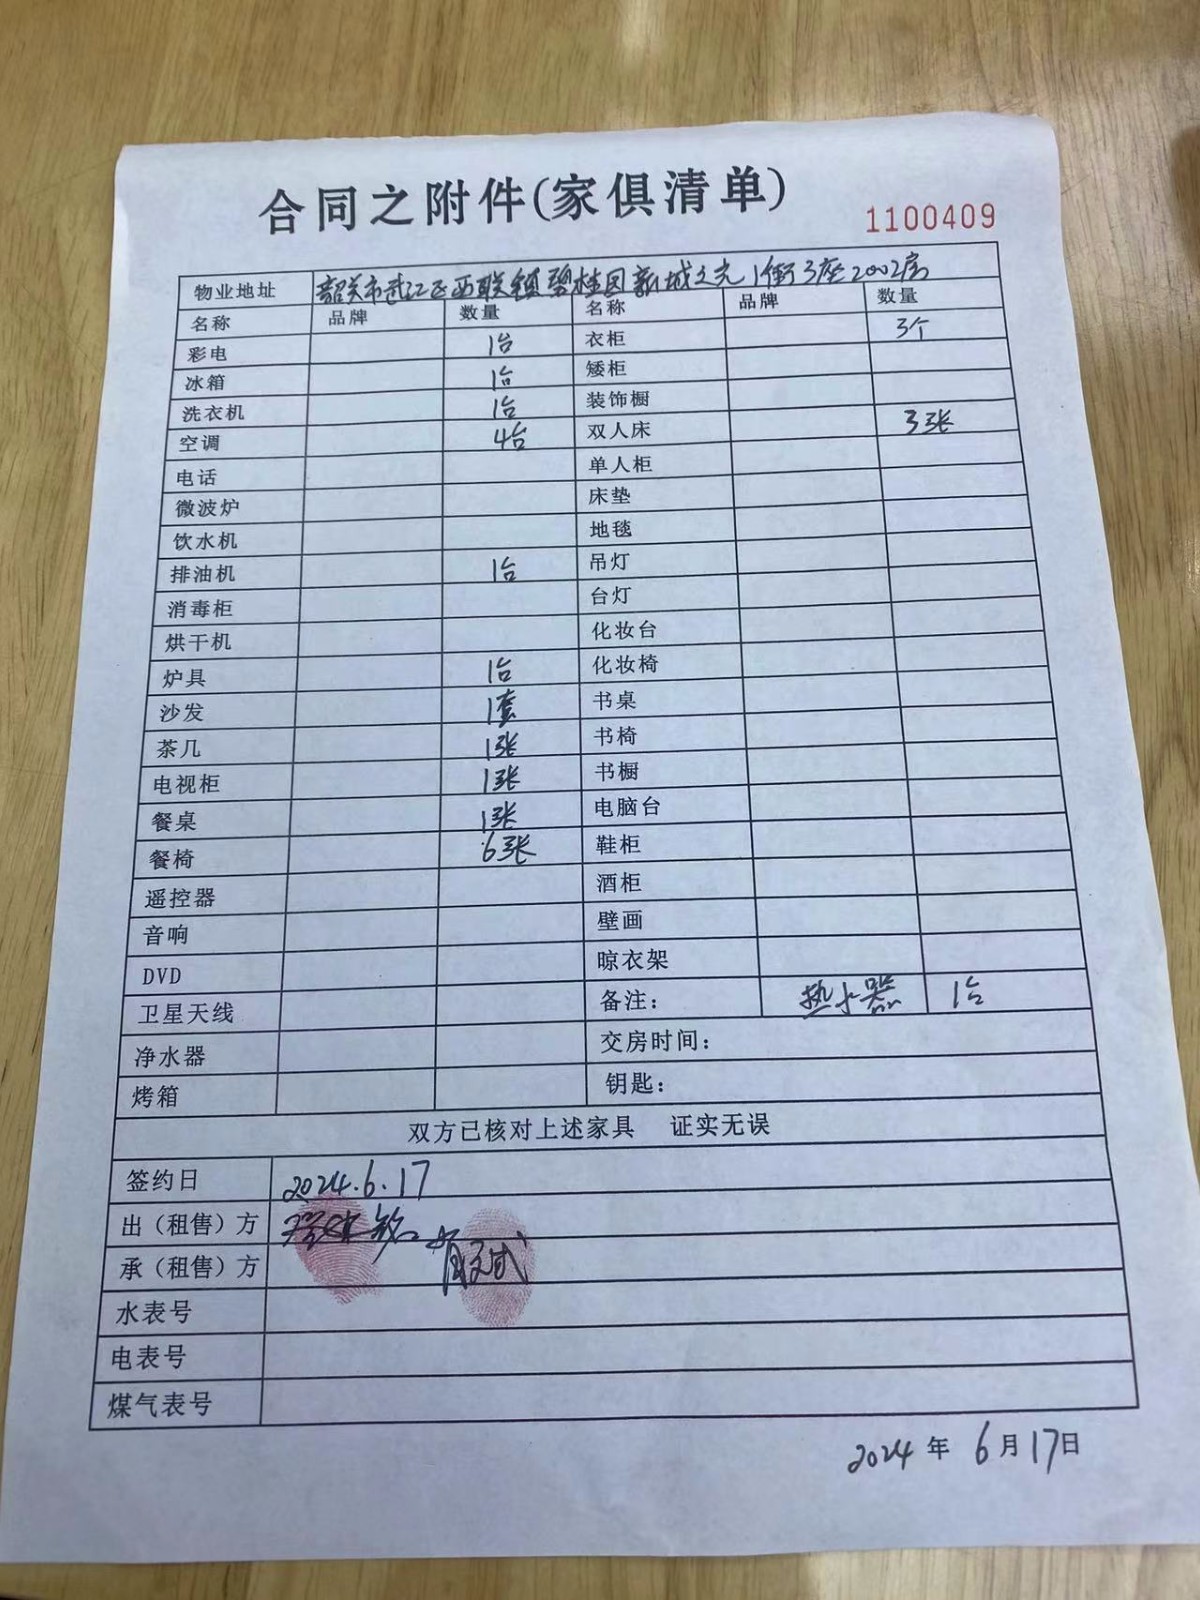 合同之附件(家俱清单)
1100409
物业地址 韶关市武江区西联镇碧桂园新城之光1街3座2002房
名称 品牌 数量 名称 品牌 数量
彩电 1台 衣柜 3个
冰箱 1台 矮柜
洗衣机 1台 装饰橱
空调 4台 双人床 3张
电话 单人柜
微波炉 床垫
饮水机 地毯
排油机 1台 吊灯
消毒柜 台灯
烘干机 化妆台
炉具 1台 化妆椅
沙发 1套 书桌
茶几 1张 书椅
电视柜 1张 书橱
餐桌 1张 电脑台
餐椅 6张 鞋柜
遥控器 酒柜
音响 壁画
DVD 晾衣架
卫星天线 备注: 热水器 1台
净水器 交房时间:
烤箱 钥匙:
双方已核对上述家具 证实无误
签约日 2024.6.17
出(租售)方
承(租售)方
水表号
电表号
煤气表号
2024年 6月17日